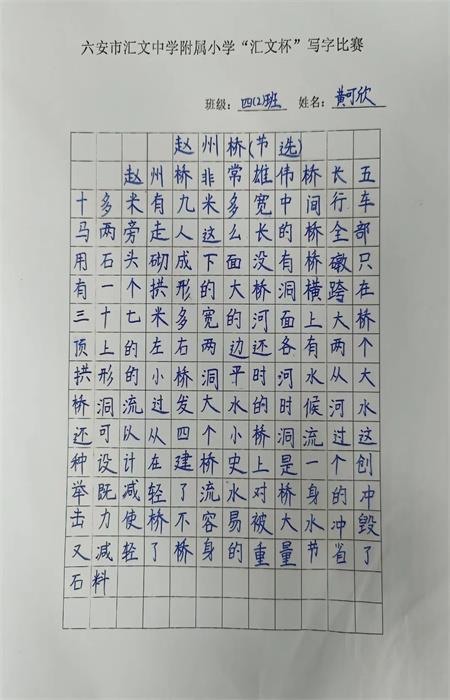 六安市汇文中学附属小学“汇文杯”写字比赛
班级：四(2)班 姓名：黄可欣
赵州桥(节选)
赵州桥非常雄伟桥长五
十多米有九米多宽中间行车
马两旁走人这么长的桥全部
用石头砌成下面没有桥礅只
有一个拱形的大桥洞横跨在
三十七米多宽的河面上大桥
顶上的左右两边还各有两个
拱形的小桥洞平时河水从大
桥洞流过发大水的时候河水
还可以从四个小桥洞流过这
种设计在建桥史上是一个创
举既减轻了流水对桥身的冲
击力使桥不容易被大水冲毁
又减轻了桥身的重量节省了
石料